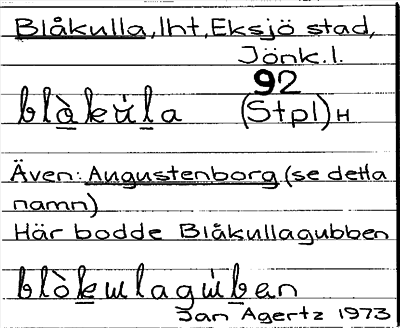 Blåkulla, lht, Eksjö stad,
Jönk. l.
92
blàkúla (Stpl) H
Även: Augustenborg (se detta
namn)
Här bodde Blåkullagubben
blòkɯlagúban
Jan Agertz 1973